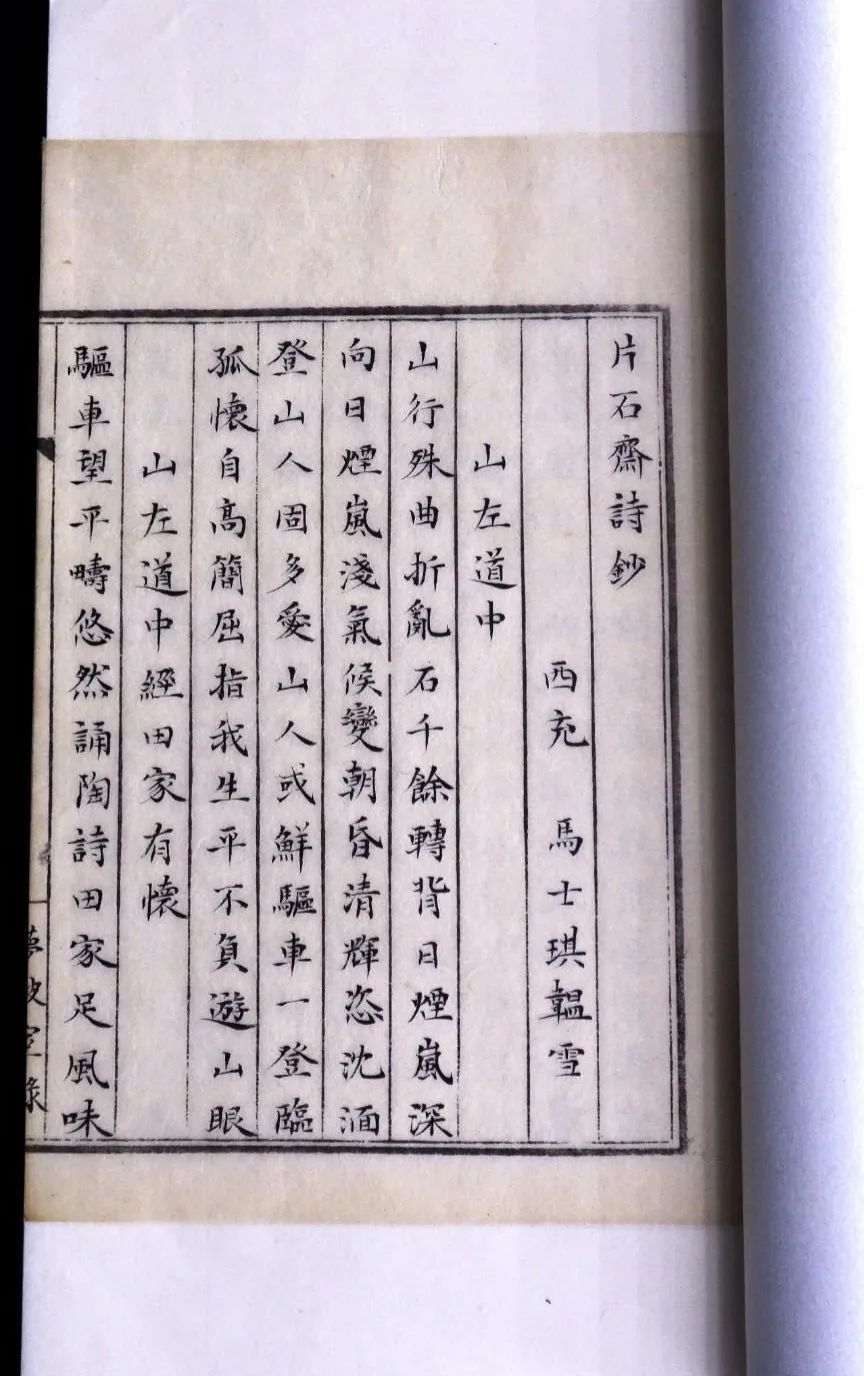 片石齋詩鈔
西充 馬士琪韞雪
山左道中
山行殊曲折亂石千餘轉背日煙嵐深
向日煙嵐淺氣候變朝昏清輝恣沈湎
登山人固多愛山人或鮮驅車一登臨
孤懷自高簡屈指我生平不負遊山眼
山左道中經田家有懷
驅車望平疇悠然誦陶詩田家足風味